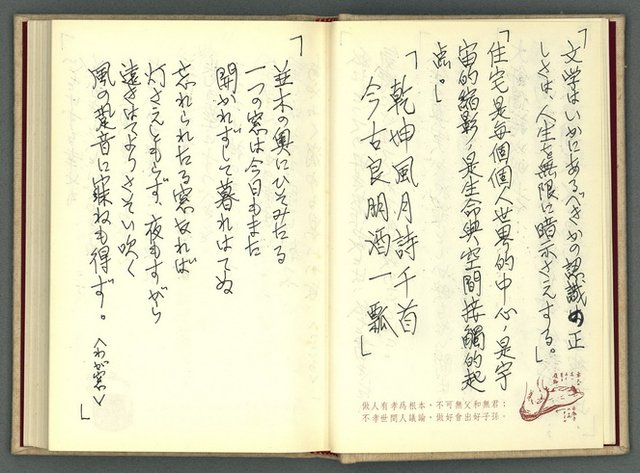 「文学はいかにあるべきかの認識の正
しさは、人生を無限に暗示さえする。」
「住宅是每個個人世界的中心,是宇
宙的縮影,是生命與空間接觸的起
点。」
「乾坤風月詩千首
今古良朋酒一瓢」
做人有孝為根本,不可無父和無君;
不孝世間人議論,做好會出好子孫。
「並木の奥にひそみたる
一つの窓は今日もまた
開かれずして暮れはてぬ
忘れられたる窓なれば
灯さえともらず、夜もすがら
遠きはてよりさそい吹く
風の跫音に寐ねも得ず。
〈わが窓〉」